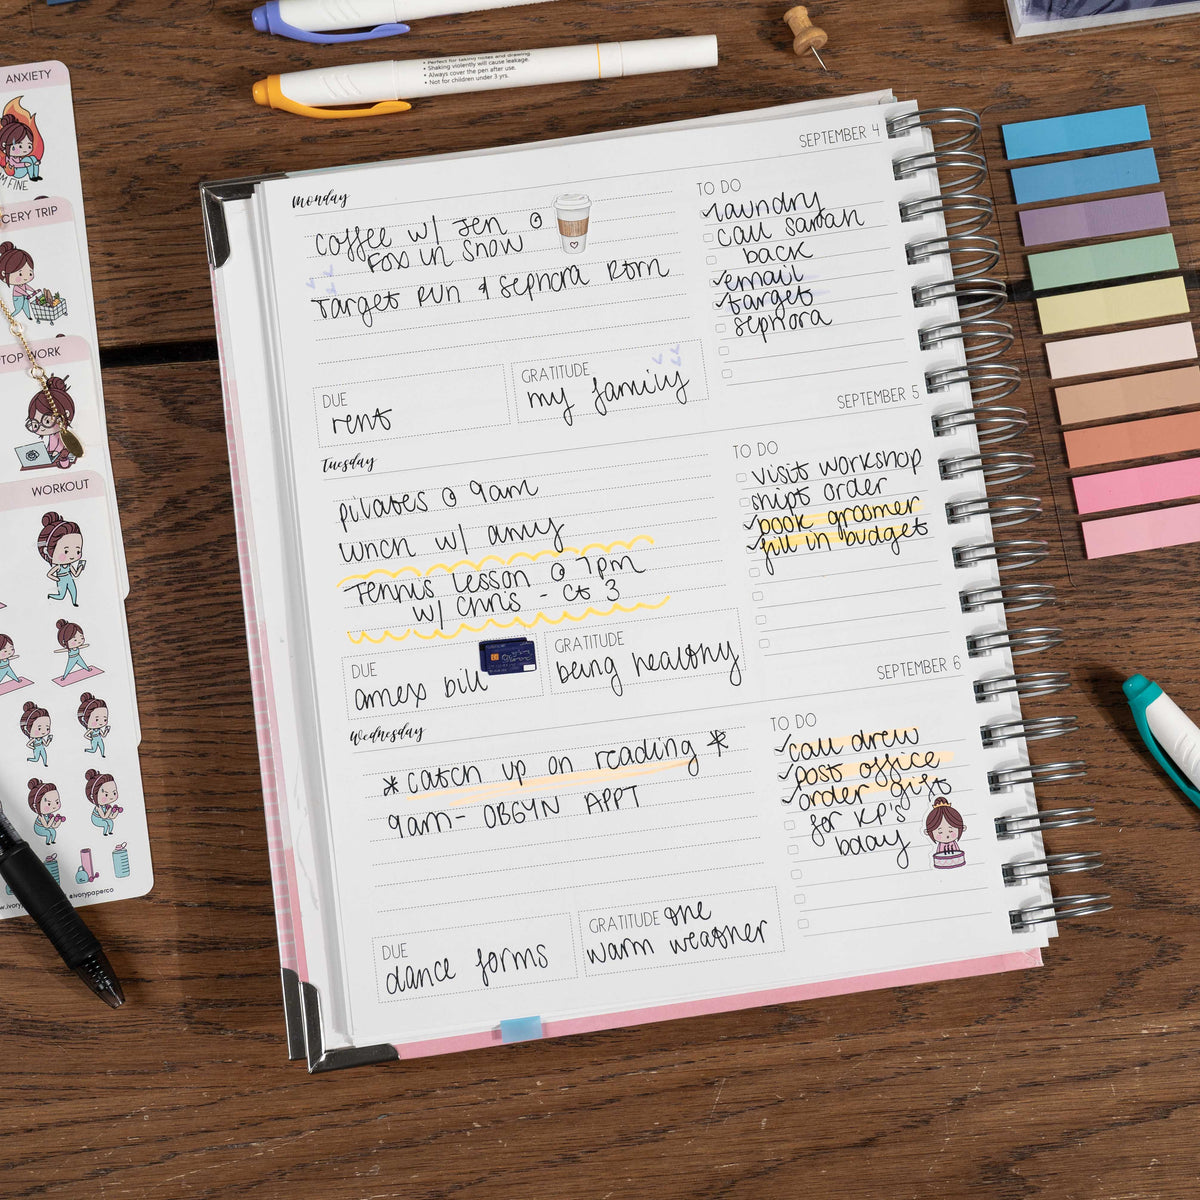 • Perfect for taking notes and drawing.
• Shaking violently will cause leakage.
• Always cover the pen after use.
• Not for children under 3 yrs.
ANXIETY
M FINE
CERY TRIP
TOP WORK
WORKOUT
@ivorypaperco
SEPTEMBER 4
Monday
Coffee w/ Jen @
Fox in Snow
Target Run & Sephora Rtrn
DUE
rent
GRATITUDE
my family
TO DO
laundry
call Sarah
back
email
target
sephora
SEPTEMBER 5
Tuesday
pilates @ 9am
lunch w/ amy
Tennis Lesson @ 7pm
w/ Chris - Ct 3
DUE
amex bill
GRATITUDE
being healthy
TO DO
visit workshop
ship order
book groomer
fill in budget
SEPTEMBER 6
Wednesday
*catch up on reading*
9am- OBGYN APPT
DUE
dance forms
GRATITUDE the
warm weather
TO DO
call drew
post office
order gift
for KP's
bday